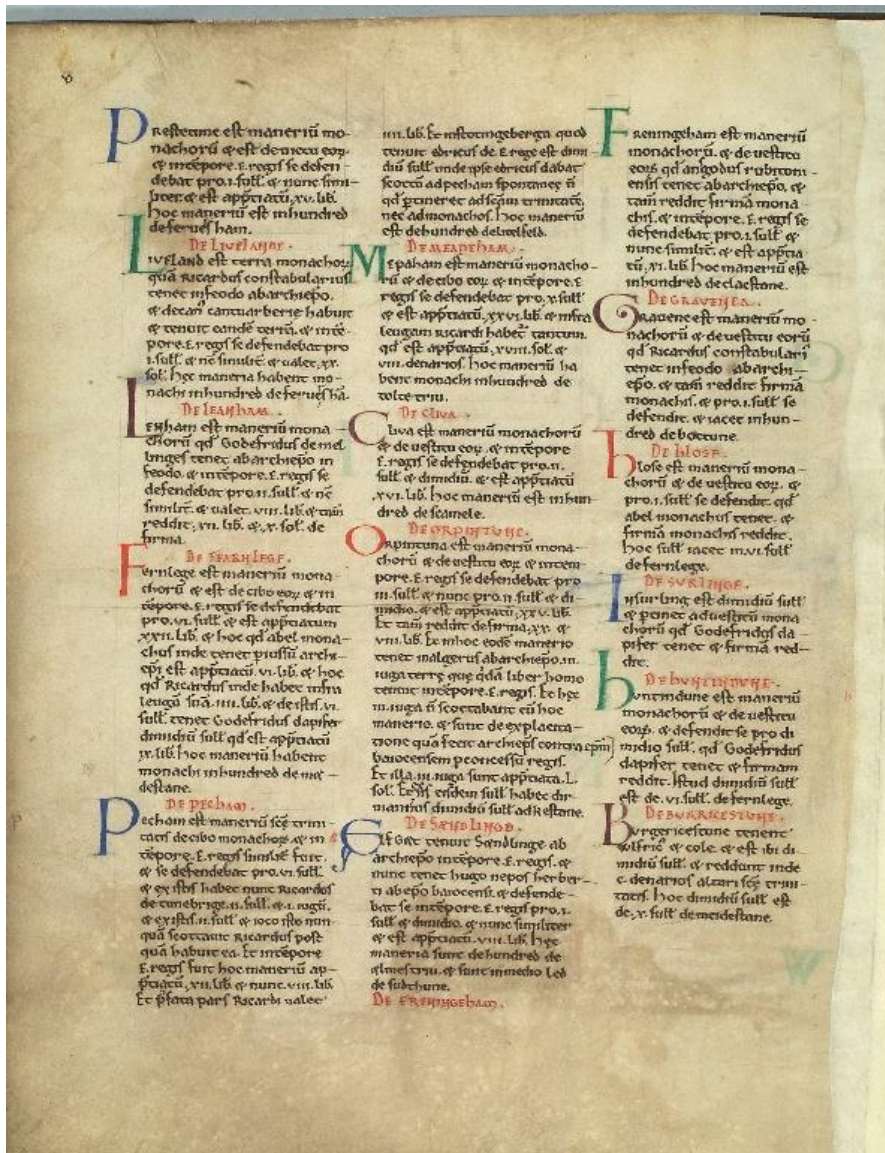 Prestetune est maneriū mo-
nachorū ⁊ est de uictu eoꝝ
⁊ in tēpore .E. regis se defen-
debat pro .i. sull. ⁊ nunc simi-
liter. ⁊ est app̄tiatū .xv. lib.
hoc maneriū est in hundred
de ferues ham.
DE LIUELANDE.
LIUELAND est terra monachoꝝ
quā Ricardus constabularius
tenet in feodo ab archiep̄o.
⁊ decan᷒ cantuarberie habuit
⁊ tenuit eandē terrā. ⁊ in tē-
pore .E. regis se defendebat pro
.i. sull. ⁊ nc̄ similit̄. ⁊ ualet .xx.
sol. hęc maneria habent mo-
nachi in hundred de ferues hā.
DE LEANHAM.
Lenham est maneriū mona-
chorū qd̄ Godefridus de mel
linges tenet ab archiep̄o in
feodo. ⁊ in tēpore .E. regis se
defendebat pro .ii. sull. ⁊ nc̄
similit̄. ⁊ ualet .viii. lib. ⁊ tam̄
reddit .xii. lib. ⁊ .x. sol. de
firma.
DE FEARNLEGE.
Fernlege est maneriū mona-
chorū ⁊ est de cibo eoꝝ ⁊ in
tēpore .E. regis se defendebat
pro .vi. sull. ⁊ est app̄tiatum
.xxii. lib. ⁊ hoc qd̄ abel mona-
chus inde tenet p̄ iussū archi-
ep̄i est app̄tiatū .vi. lib. ⁊ hoc
qd̄ Ricardus inde habet infra
leugā suā .iiii. lib. ⁊ de istis .vi.
sull. tenet Godefridus dapifer
dimidiū sull qd̄ est app̄tiatū
.ix. lib. hoc maneriū habent
monachi in hundred de me-
destane.
DE PECHAM.
Pecham est maneriū scę trini-
tatis de cibo monachoꝝ ⁊ in
tēpore .E. regis similit̄ fuit.
⁊ se defendebat pro .vi. sull.
⁊ ex istis habet nunc Ricardus
de tunebrige .ii. sull. ⁊ .i. iugū.
⁊ ex istis .ii. sull ⁊ ioco isto nun-
quā scottauit Ricardus post
quā habuit ea. Et in tēpore
.E. regis fuit hoc maneriū ap-
p̄tiatū .xii. lib. ⁊ nunc .viii. lib.
Et p̄fata pars Ricardi ualet
iiii. lib. Et in stotingeberga quod
tenuit edricus de .E. rege est dimi-
diū sull unde ipse edricus dabat
scottū ad pecham spontanee n̄
qd̄ ptineret ad scām trinitatē,
nec ad monachos. hoc maneriū
est de hundred de litelfeld.
DE MEAPEHAM.
Mepaham est maneriū monacho-
rū ⁊ de cibo eoꝝ ⁊ in tēpore .E.
regis se defendebat pro .x. sull
⁊ est app̄tiatū .xxvi. lib. ⁊ infra
leugam Ricardi habet̄ tantum.
qd̄ est app̄tiatū .xviii. sol. ⁊
viii. denarios. hoc maneriū ha
bent monachi in hundred de
toltetriu.
DE CLIUA.
Cliua est maneriū monachorū
⁊ de uestitu eoꝝ. ⁊ in tēpore
.E. regis se defendebat pro .ii.
sull. ⁊ dimidiū. ⁊ est app̄tiatū
.xvi. lib. hoc maneriū est in hun-
dred de scamele.
DE ORPINTUNE.
Orpintuna est maneriū mona-
chorū ⁊ de uestitu eoꝝ ⁊ in tem-
pore .E. regis se defendebat pro
iii. sull. ⁊ nunc pro .ii. sull. ⁊ di-
midio. ⁊ est app̄tiatū .xxv. lib.
Et tam̄ reddit de firma .xx. ⁊
viii. lib. Et in hoc eodē manerio
tenet malgerus ab archiep̄o .iii.
iuga terrę quę q̄dā liber homo
tenuit in tēpore .E. regis. Et hęc
.iii. iuga n̄ scottabant cū hoc
manerio. ⁊ sunt de explacita-
tione quā fecit archiep̄s contra ep̄m
baiocensem p concessū regis.
Et illa .iii. iuga sunt app̄tiata .L.
sol. Et iste eisdem sull habet dir-
mannos dimidiū sull ad Restane.
DE SÆNDLINGE.
Elfgæt tenuit Sændlinge ab
archiep̄o in tēpore .E. regis. ⁊
nunc tenet hugo nepos herber-
ti ab ep̄o baiocensi. ⁊ defende-
bat se in tēpore .E. regis pro .i.
sull ⁊ dimidio. ⁊ nunc similiter
⁊ est app̄tiatū .viii. lib. hęc
maneria sunt de hundred de
elmestriu. ⁊ sunt in medio led
de sudthune.
DE FRENINGEHAM.
Freningeham est maneriū
monachorū. ⁊ de uestitu
eoꝝ qd̄ ansgodus rubitoni-
ensis tenet ab archiep̄o. ⁊
tam̄ reddit firmā mona
chis. ⁊ in tēpore .E. regis se
defendebat pro .i. sull ⁊
nunc similit̄. ⁊ est app̄tia
tū .xi. lib. hoc maneriū est
in hundred de clacstane.
DE GRAUENEA.
Grauene est maneriū mo-
nachorū ⁊ de uestitu eorū
qd̄ Ricardus constabulari᷒
tenet in feodo ab archi-
ep̄o. ⁊ tam̄ reddit firmā
monachis. ⁊ pro .i. sull se
defendit. ⁊ iacet in hun-
dred de boctune.
DE hLOSE.
hlose est maneriū mona-
chorū ⁊ de uestitu eoꝝ. ⁊
pro .i. sull se defendit. qd̄
abel monachus tenet. ⁊
firmā monachis reddit.
hoc sull iacet in .vi. sull
de fernlege.
DE SURLINGE.
In surling est dimidiū sull
⁊ ptinet ad uestitū mona
chorū qd̄ Godefridus da-
pifer tenet ⁊ firmā red-
dit.
DE hUNTINDUNE.
huntindune est maneriū
monachorū ⁊ de uestitu
eoꝝ. ⁊ defendit se pro di
midio sull. qd̄ Godefridus
dapifer tenet ⁊ firmam
reddit. Istud dimidiū sull
est de .vi. sull. de fernlege.
DE BURRICESTUNE.
Burgericestune tenent
Wlfric᷒ ⁊ cole. ⁊ est ibi di
midiū sull. ⁊ reddunt inde
c. denarios altari scę trini
tatis. hoc dimidiū sull est
de .x. sull de meidestane.